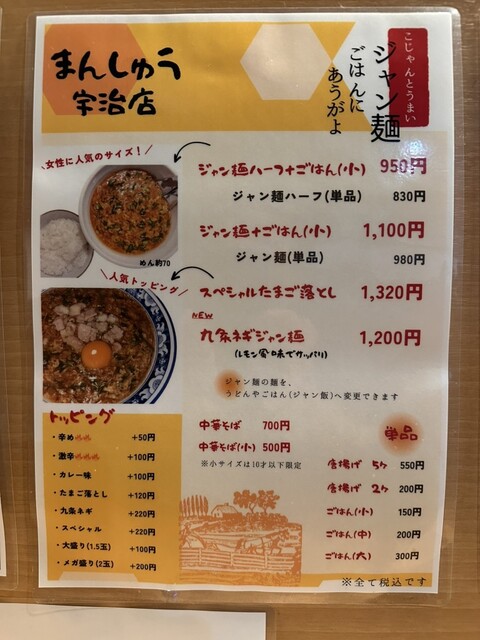 まんしゅう
宇治店
こじゃんとうまい
ジャン麺
ごはんに
あうがよ
女性に人気のサイズ！
ジャン麺ハーフ+ごはん(小) 950円
ジャン麺ハーフ(単品) 830円
ジャン麺+ごはん(小) 1,100円
ジャン麺(単品) 980円
めん約70
人気トッピング
スペシャルたまご落とし 1,320円
NEW
九条ネギジャン麺 1,200円
(レモン風味でサッパリ)
ジャン麺の麺を、
うどんやごはん(ジャン飯)へ変更できます
トッピング
・辛め +50円
・激辛 +100円
・カレー味 +100円
・たまご落とし +120円
・九条ネギ +220円
・スペシャル +220円
・大盛り(1.5玉) +100円
・メガ盛り(2玉) +200円
中華そば 700円
中華そば(小) 500円
※小サイズは10才以下限定
単品
唐揚げ 5ケ 550円
唐揚げ 2ケ 200円
ごはん(小) 150円
ごはん(中) 200円
ごはん(大) 300円
※全て税込です